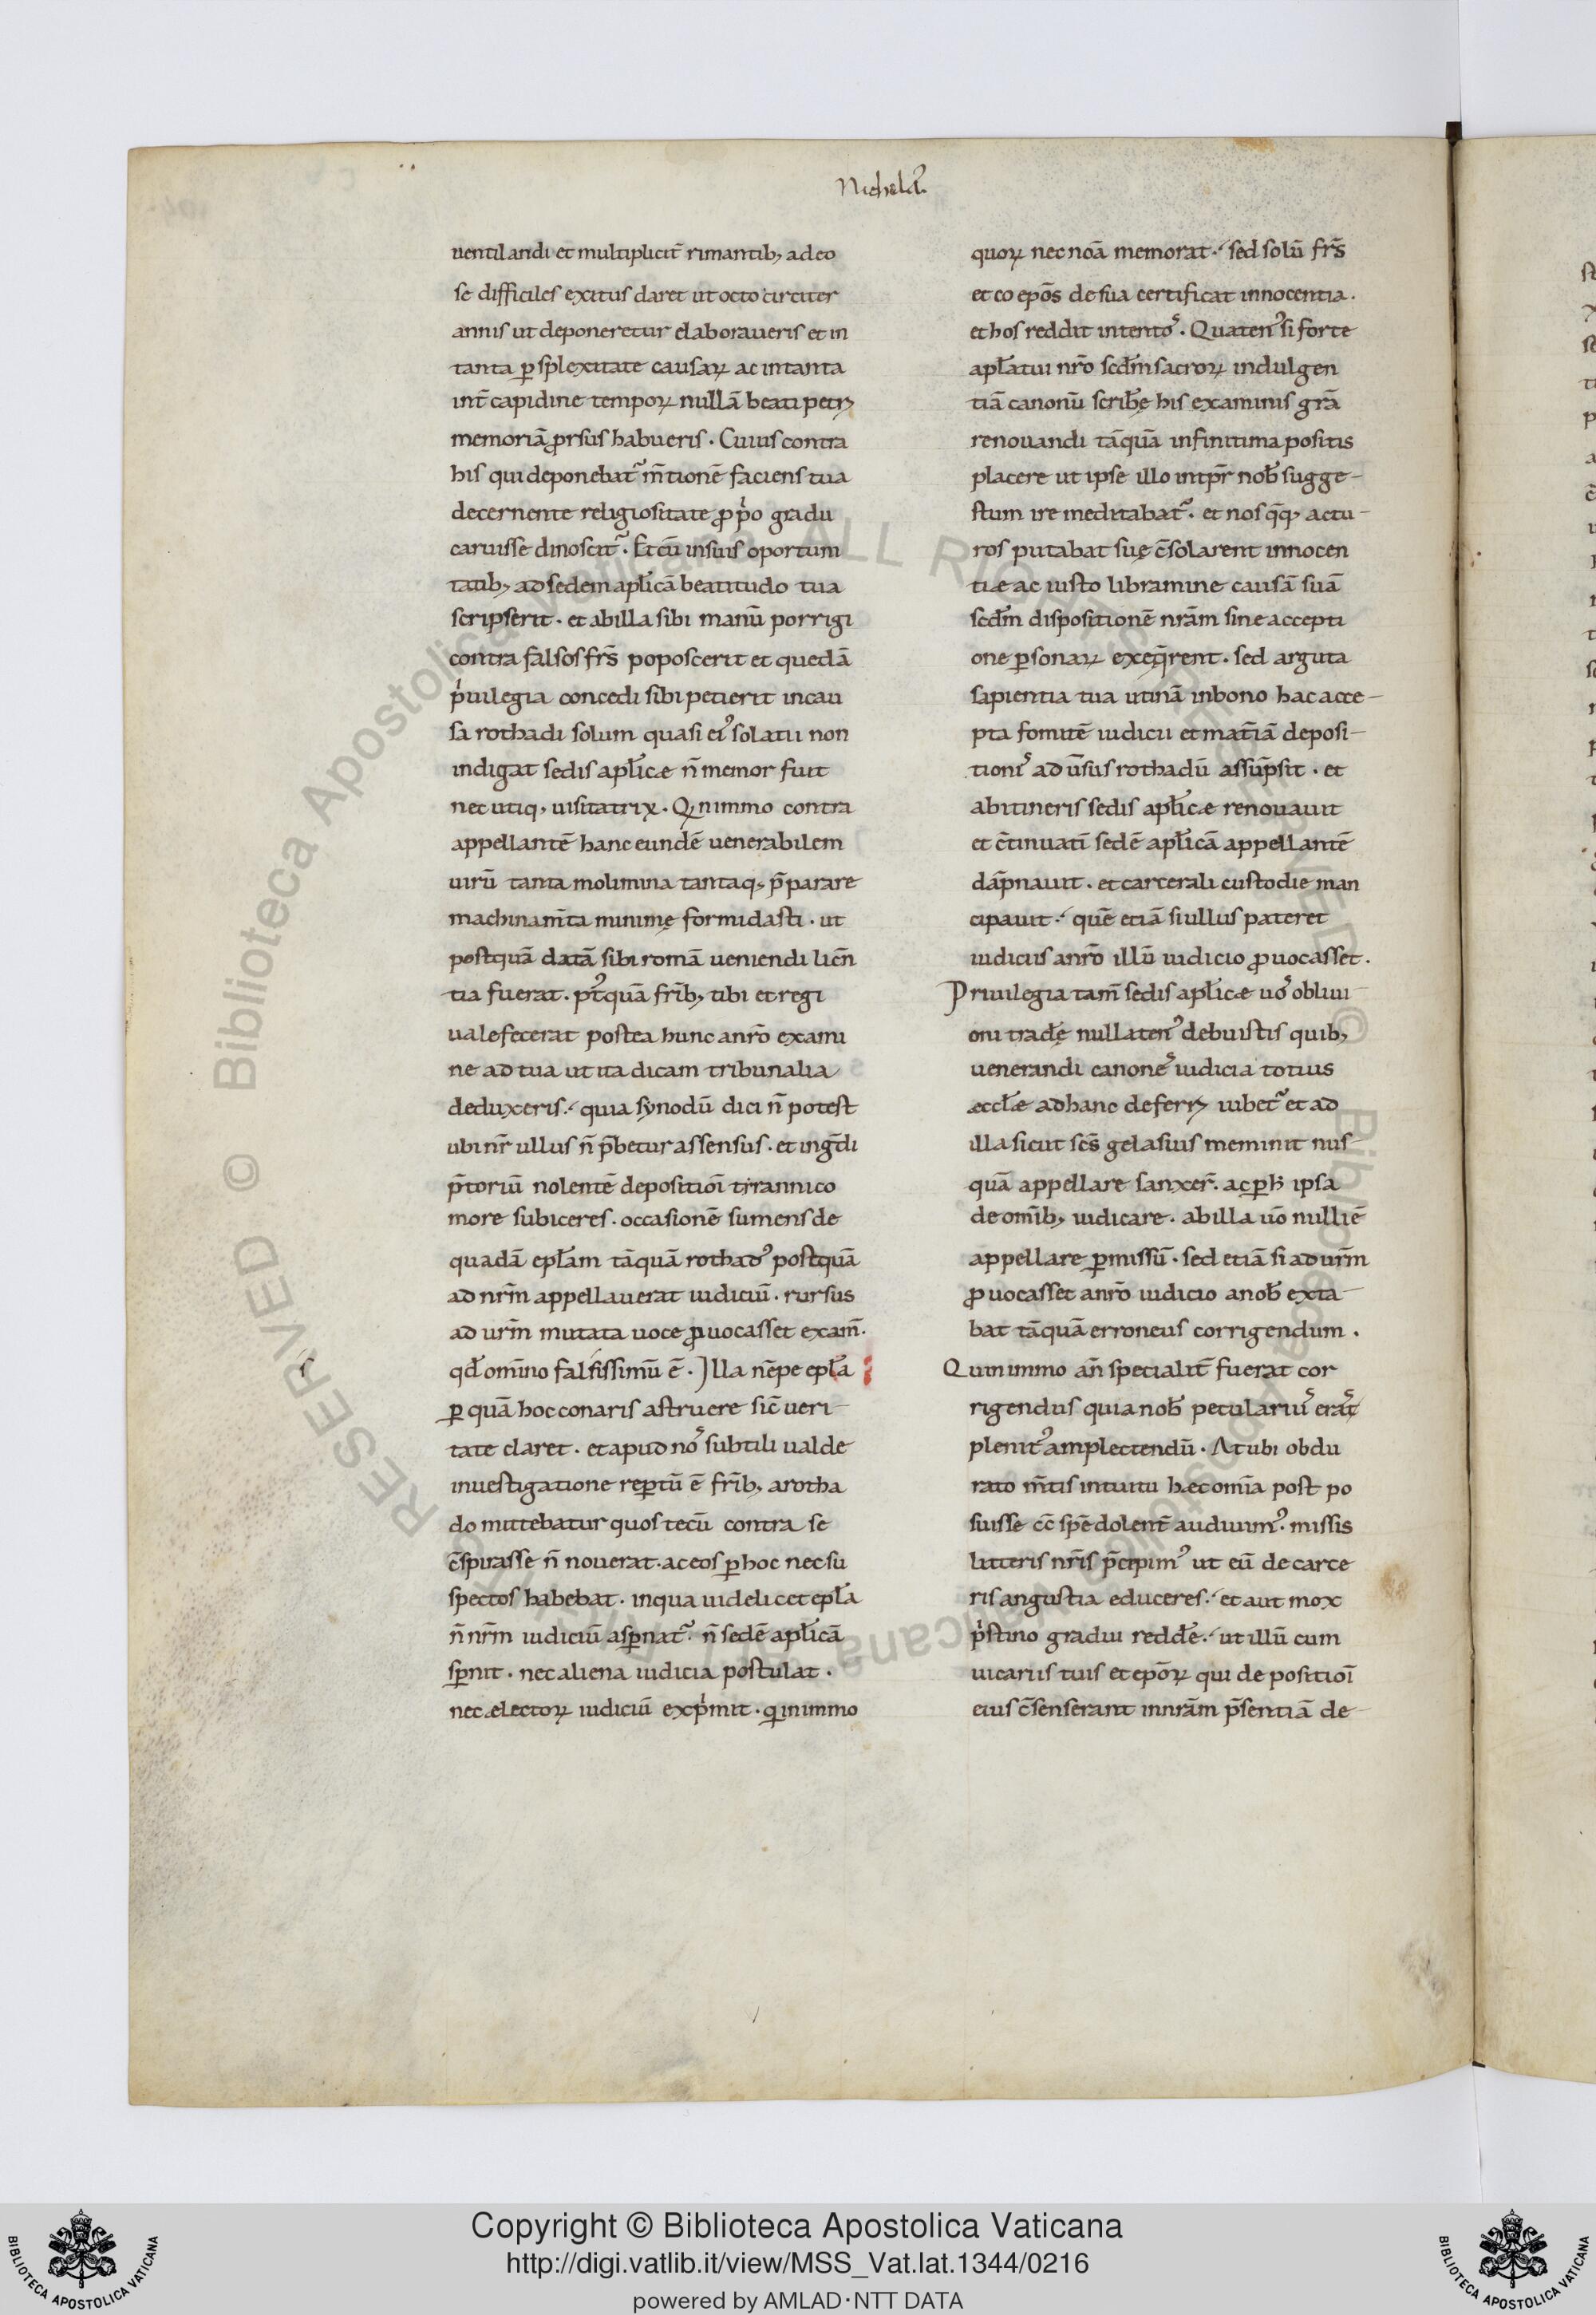 Nichola᷒.
uentilandi et multiplicit̄ rimantib; adeo
se difficiles exitus daret ut octo circiter
annis ut deponeretur elaboraueris et in
tanta ꝑsplexitate causaꝝ ac intanta
int̄capidine tempoꝝ nullā beati petri
memoriā ꝓrsus habueris. Cuius contra
his qui deponebat᷑ m̄tionē faciens tua
decernente religiositate ꝓpͥo gradu
caruisse dinoscit᷑. Et cū insuis oportum
tatib; ad sedem apl̄icā beatitudo tua
scripserit. et abilla sibi manū porrigi
contra falsos fr̄s poposcerit et quedā
pͥuilegia concedi sibi petierit incau
sa rothadi solum quasi ei᷒ solatii non
indigat sedis apl̄icæ n̄ memor fuit
nec utiq; uisitatrix. Qꝝnimmo contra
appellantē hanc eundē uenerabilem
uirū tanta molimina tantaq; p̄parare
machinam̄ta minimę formidasti. ut
postquā datā sibi romā ueniendi licn̄
tia fuerat. pt᷒quā frīb; tibi et regi
ualefecerat postea hunc anr̄o exami
ne ad tua ut ita dicam tribunalia
deduxeris. quia synodū dici n̄ potest
ubi nr̄ ullus n̄ p̄betur assensus. et ingd̄i
p̄toriū nolentē depositioī tirannico
more subiceres. occasionē sumens de
quadā epl̄am tāquā rothad᷒ postquā
ad nr̄m appellauerat iudiciū. rursus
ad ur̄m mutata uoce ꝓuocasset exam̄.
qd̄ omīno falsissimū ē. Illa nēpe epl̄a
ꝑ quā hoc conaris astruere sic̄ ueri
tate claret. et apud no᷒ subtili ualde
inuestigatione reꝑtū ē frīb; arotha
do mittebatur quos tecū contra se
c̄spirasse n̄ nouerat. ac eos ꝑ hoc nec su
spectos habebat. inqua uidelicet epl̄a
n̄ nr̄m iudiciū asꝑnat᷑. n̄ sedē apl̄icā
sꝑnit. nec aliena iudicia postulat.
nec ælectoꝝ iudiciū expͥmit. quinimmo
quoꝝ nec noā memorat. sed solū fr̄s
et coepōs de sua certificat innocentia.
et hos reddit intento᷒. Quaten᷒ si forte
apl̄atui nr̄o scd̄m sacroꝝ indulgen
tiā canonū scrib̄ę his examinis grā
renouandi tāquā infinitima positis
placere ut ipse illo intpr̄ nob̄ sugge-
stum ire meditabat᷑. et nos q̄q; actu-
ros putabat suę c̄solarent innocen
tiæ ac iusto libramine causā suā
scd̄m dispositionē nrām sine accepti
one ꝑsonaꝝ exeq̄rent. sed arguta
sapientia tua utinā inbono hac acce-
pta fomitē iudicii et mat̄iā deposi-
tioni᷒ ad ūsus rothadū assūpsit. et
abitineris sedis apl̄icæ renouauit
et c̄tinuatī sedē apl̄icā appellantē
dāpnauit. et carcerali custodie man
cipauit. quē etiā si ullus pateret
iudiciis anr̄o illū iudicio ꝓuocasset.
Priuilegia tam̄ sedis apl̄icæ uo᷒ obliui
oni trad̄ę nullaten᷒ debuistis quib;
uenerandi canone᷒ iudicia totius
æccl̄æ ad hanc deferri iubet᷑ et ad
illa sicut sc̄s gelasius meminit nus
quā appellare sanxer̄. ac ꝑ h̄ ipsa
de omīb; iudicare. abilla uō nulli ē
appellare ꝑmissū. sed etiā si ad ur̄m
ꝓuocasset anr̄o iudicio a nob̄ exta
bat tāquā erroneus corrigendum.
Quin immo an̄ specialit̄ fuerat cor
rigendus quia nob̄ peculariu᷒ erat᷒
plenit᷒ amplectendū. At ubi obdu
rato m̄tis intuitu hæc omīa post po
suisse cc̄ spē dolent̄ audiuim᷒. missis
litteris nr̄is p̄cipim᷒ ut eū de carce
ris angustia educeres. et aut mox
pͥstino gradui redd̄e. ut illū cum
uicariis tuis et epōꝝ qui depositioī
eius c̄senserant innrām p̄sentiā de
Copyright © Biblioteca Apostolica Vaticana
http://digi.vatlib.it/view/MSS_Vat.lat.1344/0216
powered by AMLAD·NTT DATA